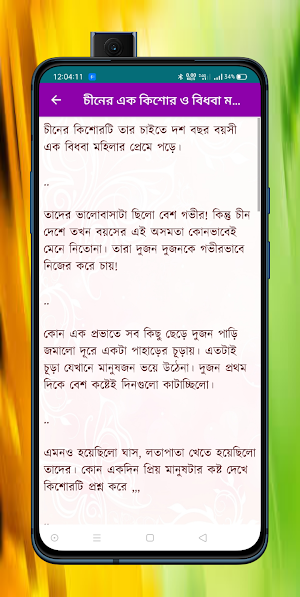 12:04:11
34%
চীনের এক কিশোর ও বিধবা ম...
চীনের কিশোরটি তার চাইতে দশ বছর বয়সী
এক বিধবা মহিলার প্রেমে পড়ে।
..
তাদের ভালোবাসাটা ছিলো বেশ গভীর! কিন্তু চীন
দেশে তখন বয়সের এই অসমতা কোনভাবেই
মেনে নিতোনা। তারা দুজন দুজনকে গভীরভাবে
নিজের করে চায়!
..
কোন এক প্রভাতে সব কিছু ছেড়ে দুজন পাড়ি
জমালো দূরে একটা পাহাড়ের চূড়ায়। এতটাই
চূড়া যেখানে মানুষজন ভয়ে উঠেনা। দুজন প্রথম
দিকে বেশ কষ্টেই দিনগুলো কাটাচ্ছিলো।
..
এমনও হয়েছিলো ঘাস, লতাপাতা খেতে হয়েছিলো
তাদের। কোন একদিন প্রিয় মানুষটার কষ্ট দেখে
কিশোরটি প্রশ্ন করে ,,,
..